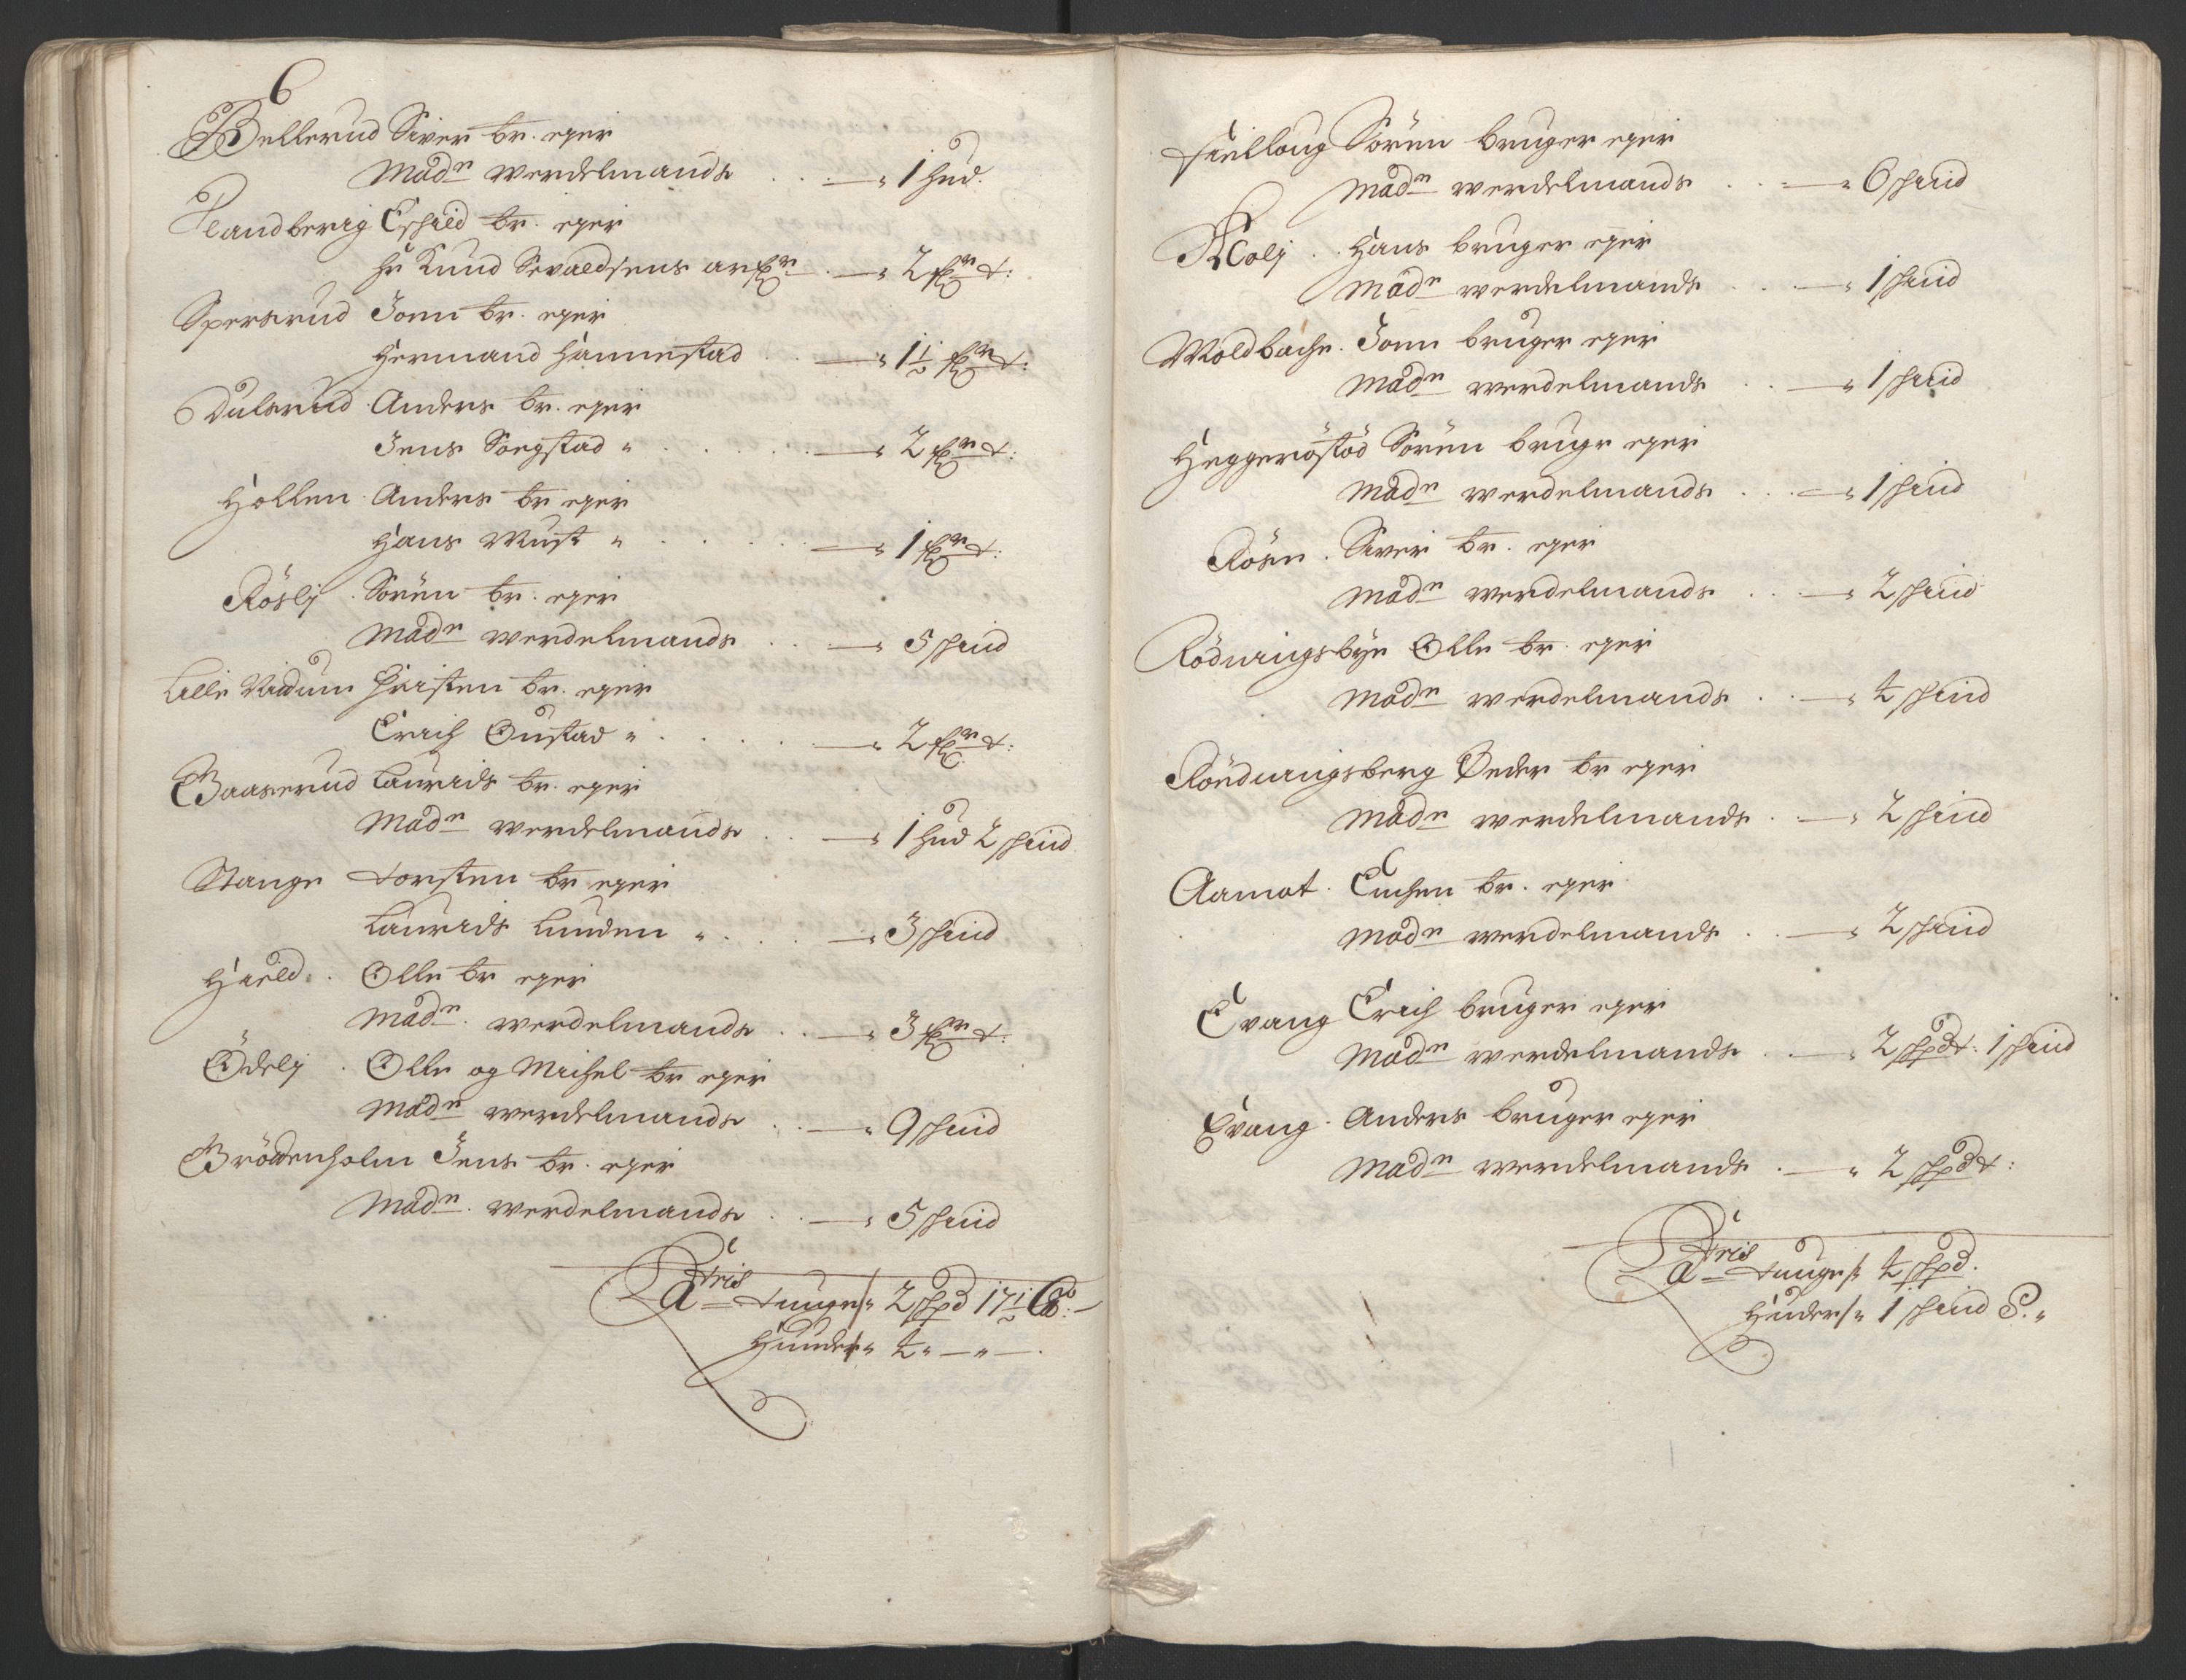 6
Bellerud Siver br. eger
Mad.n werdelmands . . — " 1 Hud.
Sandberig Eskild br. eger
Hr Knud Sevaldsens arf.r — " 2 f.r t:
Spersrud Jonn br. eger
Hermand Hannestad . . — " 1½ f.r t:
Dulsrud Anders br. eger
Jens Sorgstad " . . . — " 2 f.r t:
Hollen Anders br eger
Hans Must " . . . — " 1 f.r t:
Rösly . Sörün br. eger
Mad.n werdelmands . . — " 5 skind
Lille Viddum Christen br. eger
Erich Oustad " . . . — " 2 f.r t:
Baaserud Laurids br. eger
Mad.n werdelmands . . — " 1 Hud 2 skind
Stange Torsten br eger
Laurids Lunden " . . — " 3 skind
Olle br eger
Mad.n werdelmands . . — " 3 f.r t:
Ödely . Olle og Michel br eger
Mad.n werdelmands . . — " 9 skind
Brödenholm Jens br. eger
Mad.n werdelmands . . — " 5 skind
Latris Tunge/" 2 skpd 17½
Huuder/" 4 " — " — .
Fielloug Sörün bruger eger
Mad.n werdelmands . . — " 6 skind
Kolj . . Hans bruger eger
Mad.n werdelmands . . — " 1 skind
Moldbache . Jonn bruger eger
Mad.n werdelmands . . — " 1 skind
Heggeröstöd Sörün bruger eger
Mad.n werdelmands . . — " 1 skind
Röen . Siver br. eger
Mad.n werdelmands . . — " 2 skind
Rödningsbye Olle br. eger
Mad.n werdelmands . . — " 4 skind
Röndningsberg Peder br eger
Mad.n werdelmands . — " 2 skind
Aamot . Enchen br. eger
Mad.n werdelmands . . — " 2 skind
Evang Erich bruger eger
Mad.n werdelmands . — " 2 skpd t: 1 skind
Evang . Anders bruger eger
Mad.n werdelmands . — " 2 skpd t:
Latris Tunge/" 4 skpd.
Huder/" 1 skind